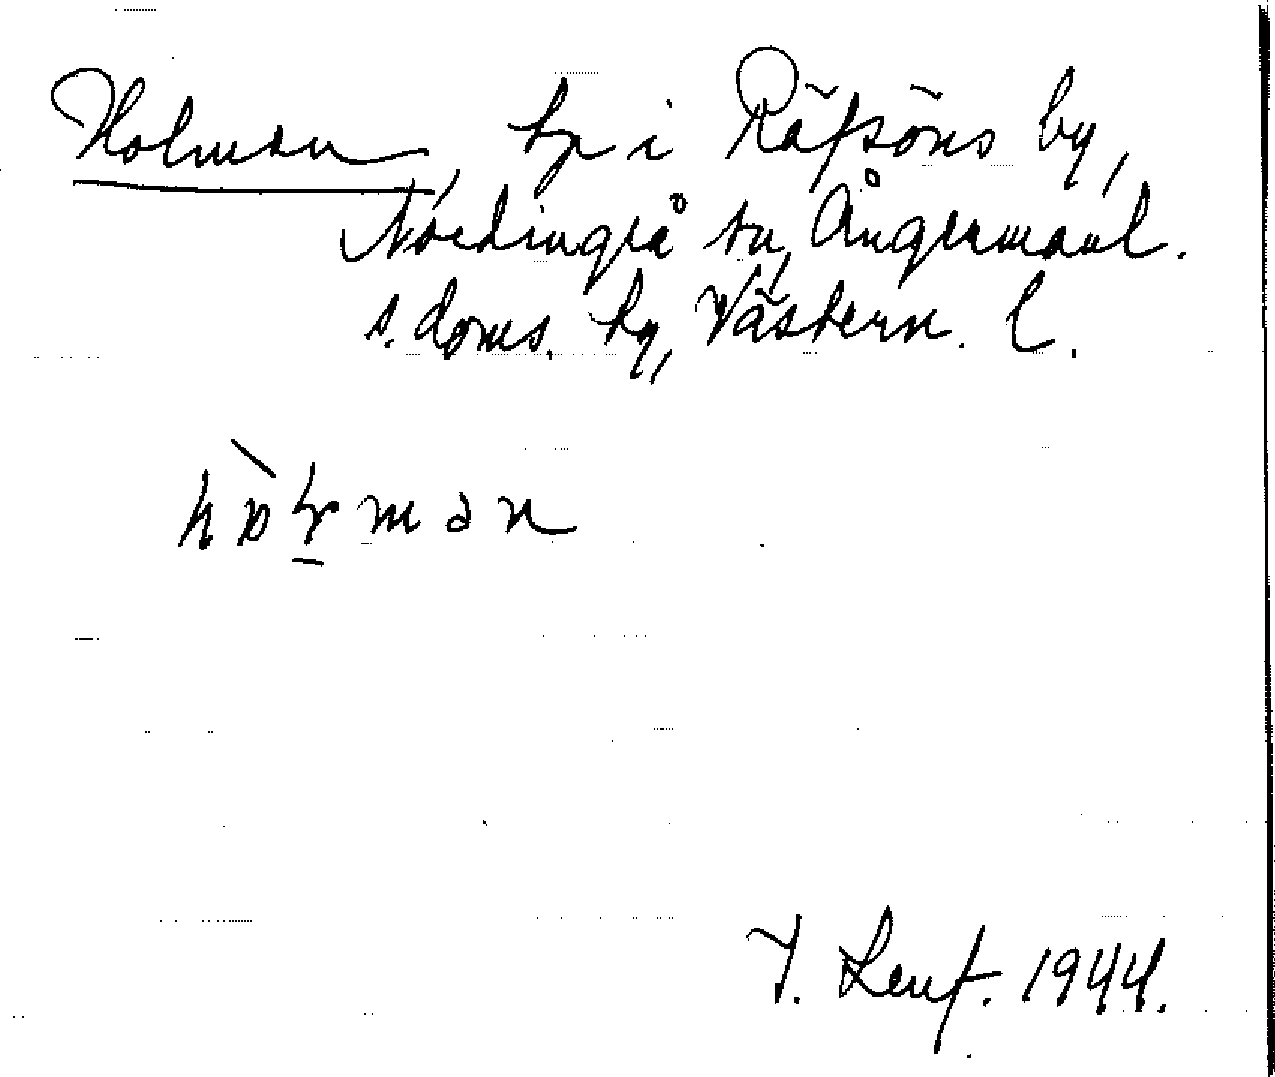 Holmen, hp i Räfsöns by,
Nordingrå sn, Ångermanl.
s. doms. hg, Västern. l.
hòlmən
F. Leuf. 1944.